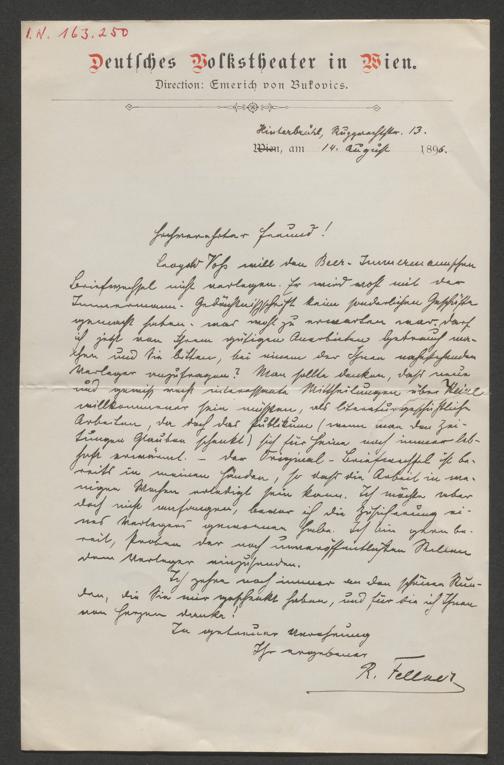 I.N. 163.250
Deutsches Volkstheater in Wien.
Direction: Emerich von Bukovics.
Hinterbrühl, Ruzgrasstr. 13.
Wien, am 14. August 1896.
Hochverehrter Freund!
Leopold Voß will den Beer-Immermannschen
Briefwechsel nicht verlegen. Er wird wohl mit der
Immermann-Gedächtnißschrift keine sonderlichen Geschäfte
gemacht haben, was wohl zu erwarten war. Darf
ich jetzt von Ihrem gütigen Anerbieten Gebrauch ma-
chen und Sie bitten, bei einem der Ihnen nahstehenden
Verleger anzufragen? Man sollte denken, daß neue
und gewiß recht interessante Mittheilungen über
willkommener sein müßten, als literaturgeschichtliche
Arbeiten, da doch das Publikum (wenn man den Zei-
tungen Glauben schenkt) sich für Heine noch immer leb-
haft erwärmt. – Der Original-Briefwechsel ist be-
reits in meinen Händen, so daß die Arbeit in we-
nigen Wochen erledigt sein kann. Ich möchte aber
doch nicht anfangen, bevor ich die Zusicherung ei-
nes Verlegers gewonnen habe. Ich bin gern be-
reit, Proben der noch unveröffentlichten Stellen
dem Verleger einzusenden.
Ich zehre noch immer an den schönen Stun-
den, die Sie mir geschenkt haben, und für die ich Ihnen
von Herzen danke!
In getreuer Verehrung
Ihr ergebener
R. Fellner